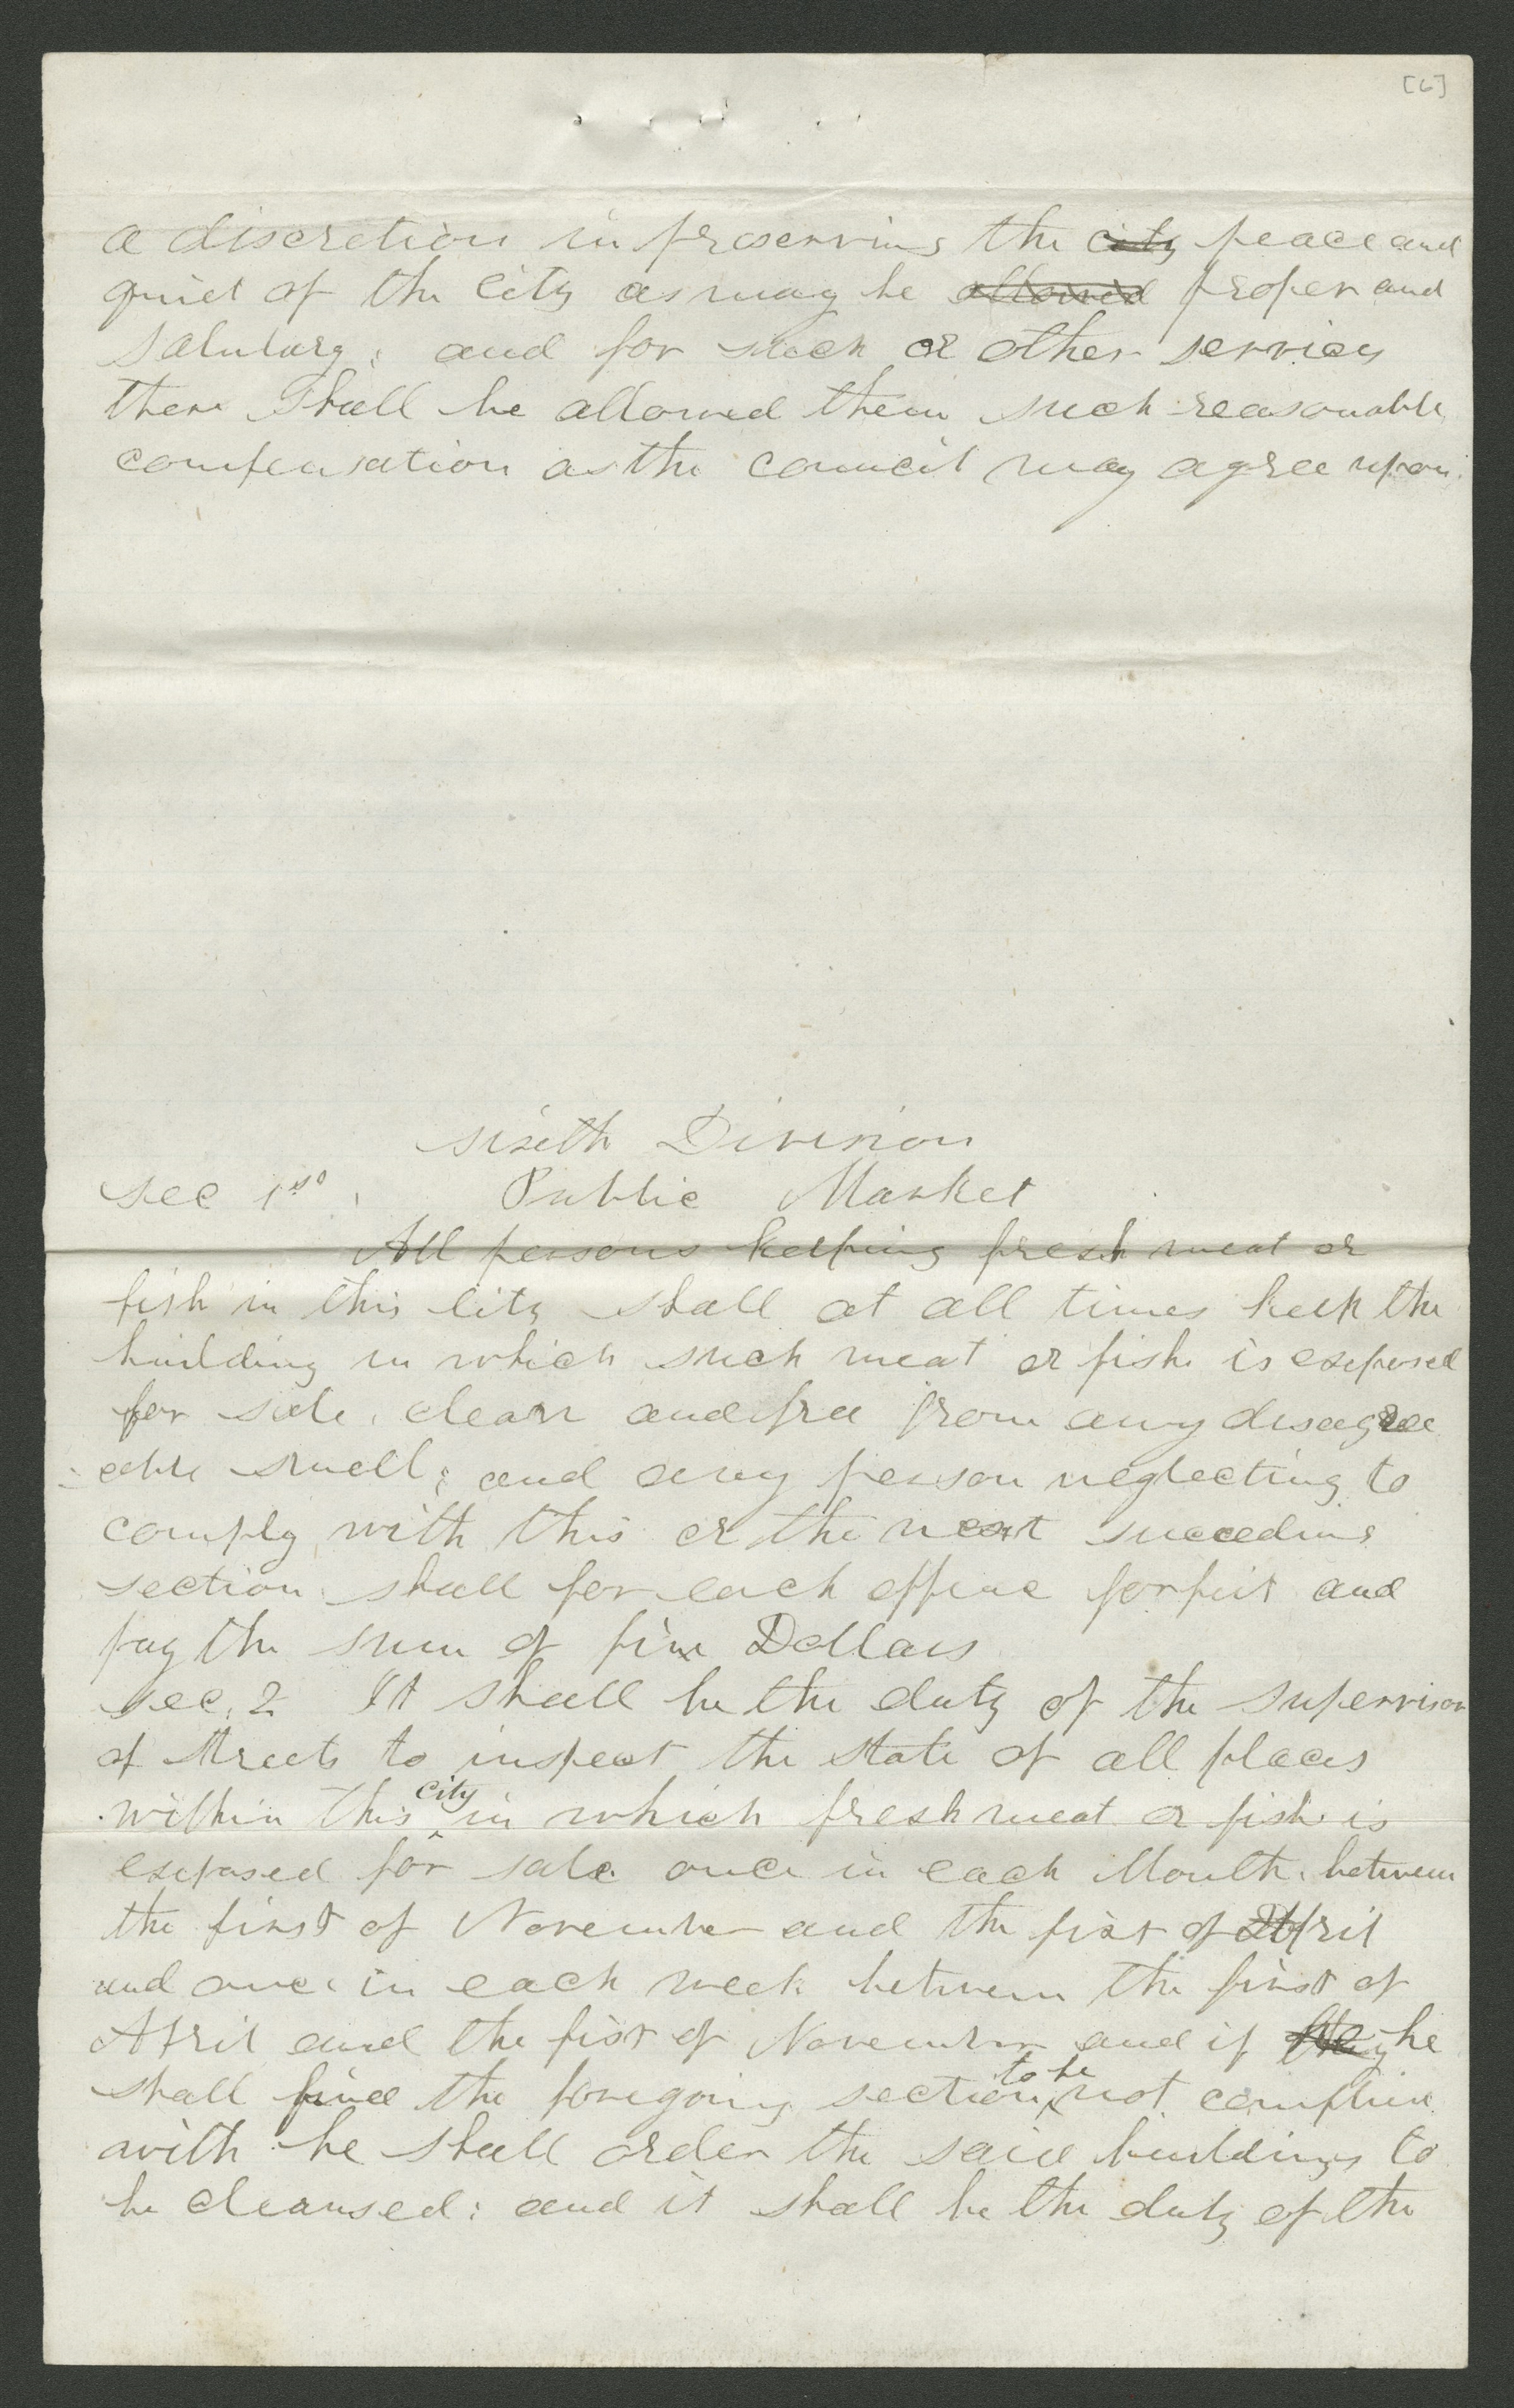 [6]
a discretion in preserving the city peace and
quiet of the City as may be allowed proper and
salutary; and for such or other services
there shall be allowed them such reasonable
compensation as the council may agree upon.
sixth Division
sec 1st. Public Market
All persons keeping fresh meat or
fish in this City shall at all times keep the
building in which such meat or fish is exposed
for sale, clean and free from any disagree
=able smell; and any person neglecting to
comply with this or the next succeeding
section shall for each offence forfeit and
pay the sum of five Dollars
sec. 2 It shall be the duty of the supervisor
of streets to inspect the state of all places
within this city in which fresh meat or fish is
exposed for sale once in each Month between
the first of November and the first of April
and once in each week between the first of
April and the first of November and if they he
shall find the foregoing section to be not complied
with he shall order the said buildings to
be cleansed; and it shall be the duty of the